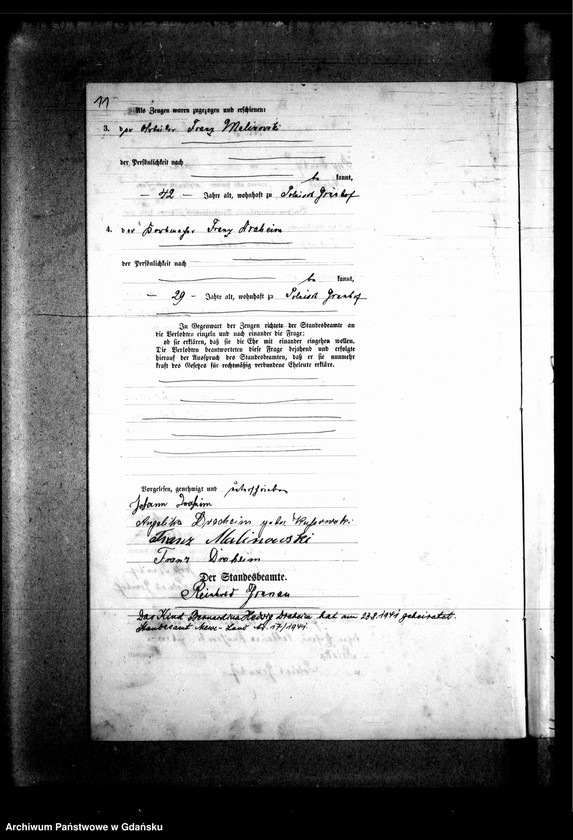 11
Als Zeugen waren zugezogen und erschienen:
3. der Arbeiter Franz Malinowski
der Persönlichkeit nach
be kannt,
42 Jahre alt, wohnhaft zu Polnisch
4. der Franz Draheim
der Persönlichkeit nach
be kannt,
29 Jahre alt, wohnhaft zu Polnisch
In Gegenwart der Zeugen richtete der Standesbeamte an
die Verlobten einzeln und nach einander die Frage:
ob sie erklären, daß sie die Ehe mit einander eingehen wollen.
Die Verlobten beantworteten diese Frage bejahend und erfolgte
hierauf der Ausspruch des Standesbeamten, daß er sie nunmehr
kraft des Gesetzes für rechtmäßig verbundene Eheleute erkläre.
Vorgelesen, genehmigt und unterschrieben
Johann Draheim
Angelika Draheim geb.
Franz Malinowski
Franz Draheim
Der Standesbeamte.
Reinhold
Das Kind Bernardina Hedwig Draheim hat am 23.8.1941 geheiratet.
Standesamt Mewe-Land Nr. 17/1941
Archiwum Państwowe w Gdańsku